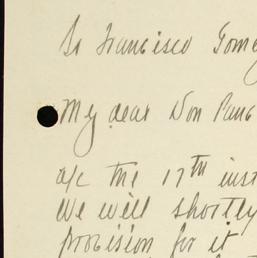 Dr Francisco Gome
My dear Don Panc
a/c the 17th inst
We will shortly
provision for it